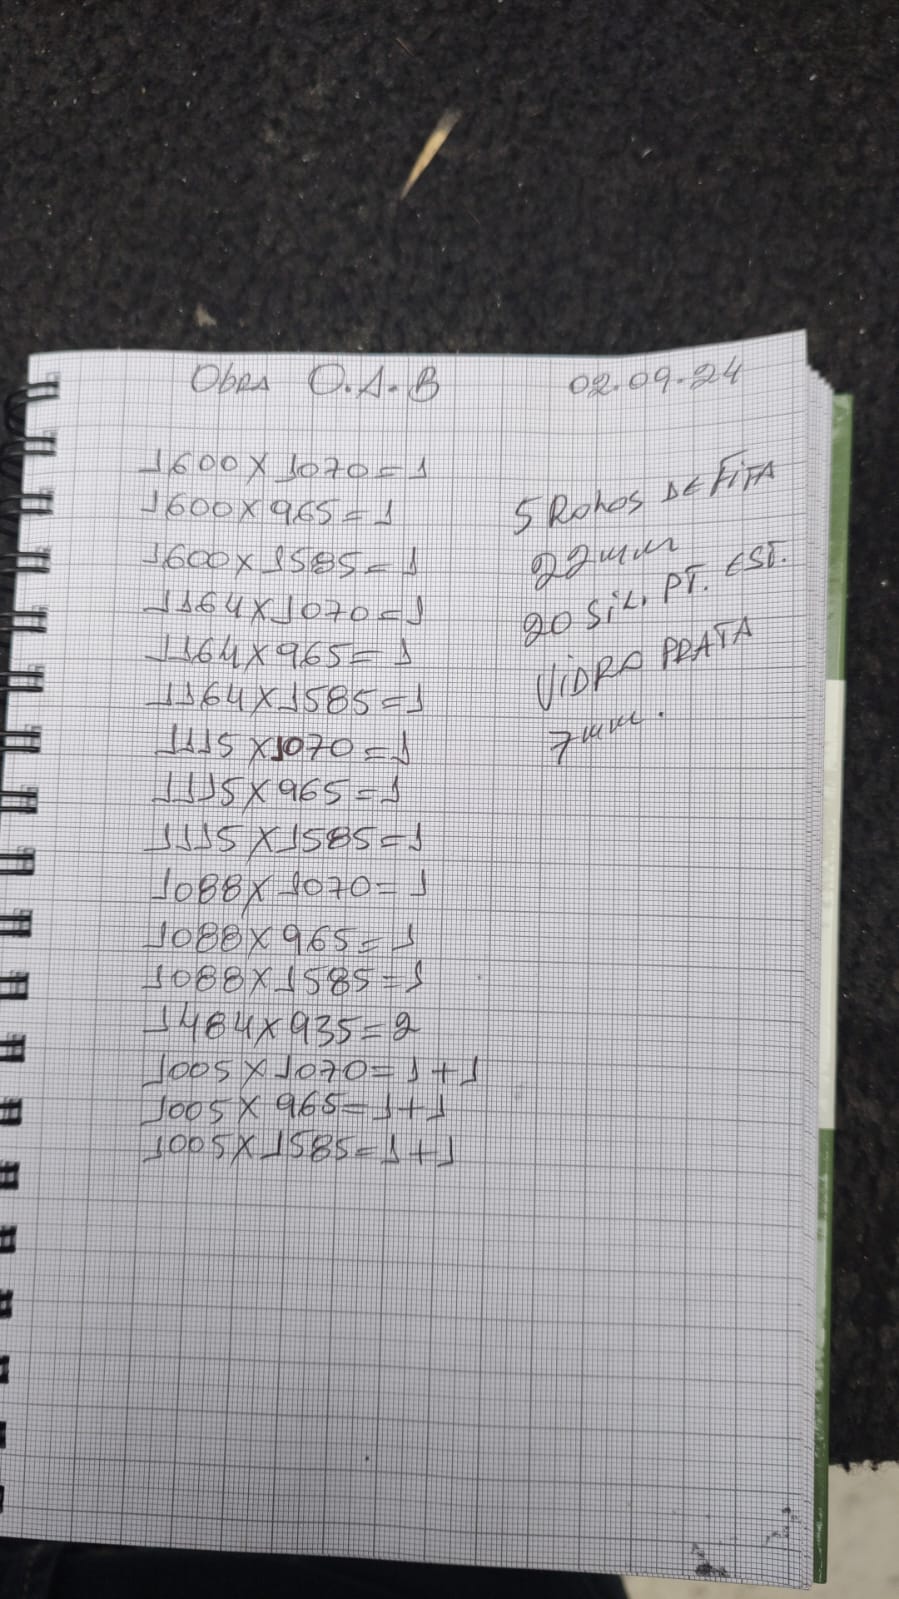 Obra O.A.B 02.09.24
1600X1070=1
1600X965=1
1600X1585=1
1164X1070=1
1164X965=1
1164X1585=1
1115X1070=1
1115X965=1
1115X1585=1
1088X1070=1
1088X965=1
1088X1585=1
1484X935=2
1005X1070=1+1
1005X965=1+1
1005X1585=1+1
5 Rolos DE FITA
22mm
20 SiL. PT. EST.
VIDRO PRATA
7mm.